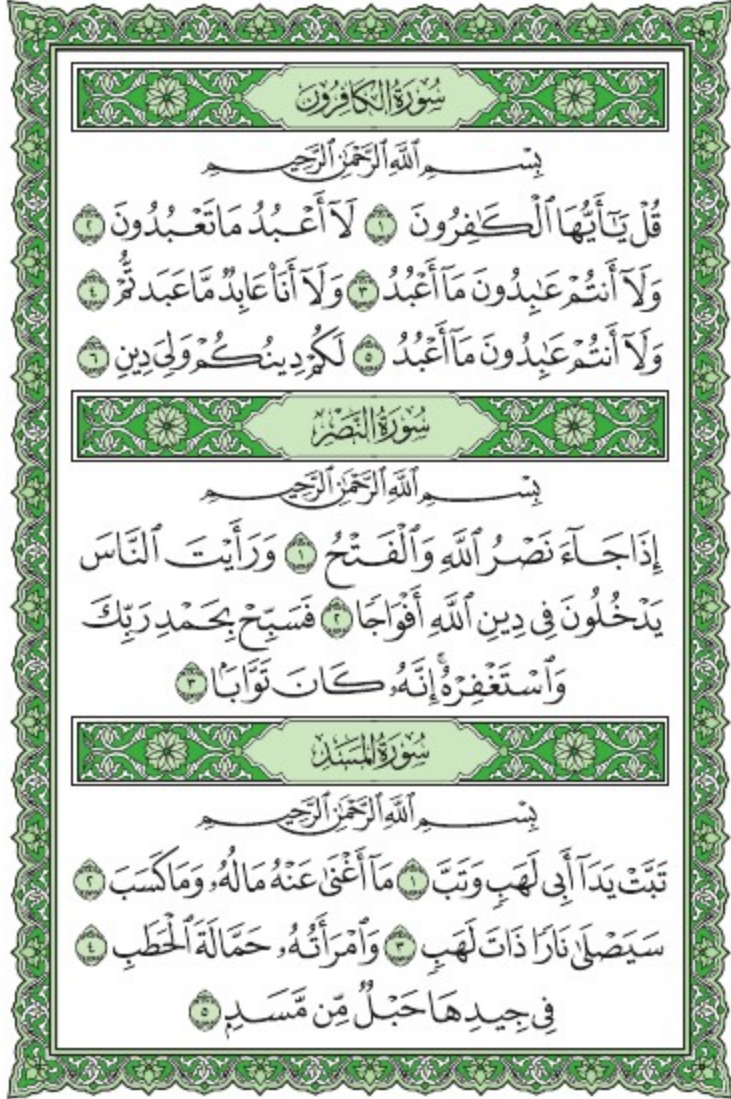 سُورَةُ الكَافِرُون
بِسْمِ ٱللَّهِ ٱلرَّحْمَٰنِ ٱلرَّحِيمِ
قُلْ يَٰٓأَيُّهَا ٱلْكَٰفِرُونَ ١ لَآ أَعْبُدُ مَا تَعْبُدُونَ ٢
وَلَآ أَنتُمْ عَٰبِدُونَ مَآ أَعْبُدُ ٣ وَلَآ أَنَا۠ عَابِدٌ مَّا عَبَدتُّمْ ٤
وَلَآ أَنتُمْ عَٰبِدُونَ مَآ أَعْبُدُ ٥ لَكُمْ دِينُكُمْ وَلِىَ دِينِ ٦
سُورَةُ النَّصْرِ
بِسْمِ ٱللَّهِ ٱلرَّحْمَٰنِ ٱلرَّحِيمِ
إِذَا جَآءَ نَصْرُ ٱللَّهِ وَٱلْفَتْحُ ١ وَرَأَيْتَ ٱلنَّاسَ
يَدْخُلُونَ فِى دِينِ ٱللَّهِ أَفْوَاجًا ٢ فَسَبِّحْ بِحَمْدِ رَبِّكَ
وَٱسْتَغْفِرْهُ ۚ إِنَّهُۥ كَانَ تَوَّابًۢا ٣
سُورَةُ المَسَدِ
بِسْمِ ٱللَّهِ ٱلرَّحْمَٰنِ ٱلرَّحِيمِ
تَبَّتْ يَدَآ أَبِى لَهَبٍ وَتَبَّ ١ مَآ أَغْنَىٰ عَنْهُ مَالُهُۥ وَمَا كَسَبَ ٢
سَيَصْلَىٰ نَارًا ذَاتَ لَهَبٍ ٣ وَٱمْرَأَتُهُۥ حَمَّالَةَ ٱلْحَطَبِ ٤
فِى جِيدِهَا حَبْلٌ مِّن مَّسَدٍۭ ٥